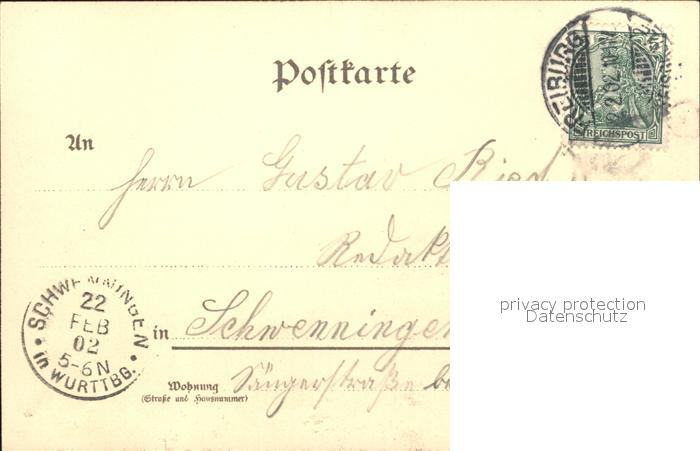 Postkarte
FREIBURG
2.2.02.10-11
REICHSPOST
An
Herrn Gustav Ried
Redakt
in Schwenningen
Wohnung Sängerstraße be
(Straße und Hausnummer)
SCHWENNINGEN
22
FEB
02
5-6N
in WÜRTTBG.
privacy protection
Datenschutz